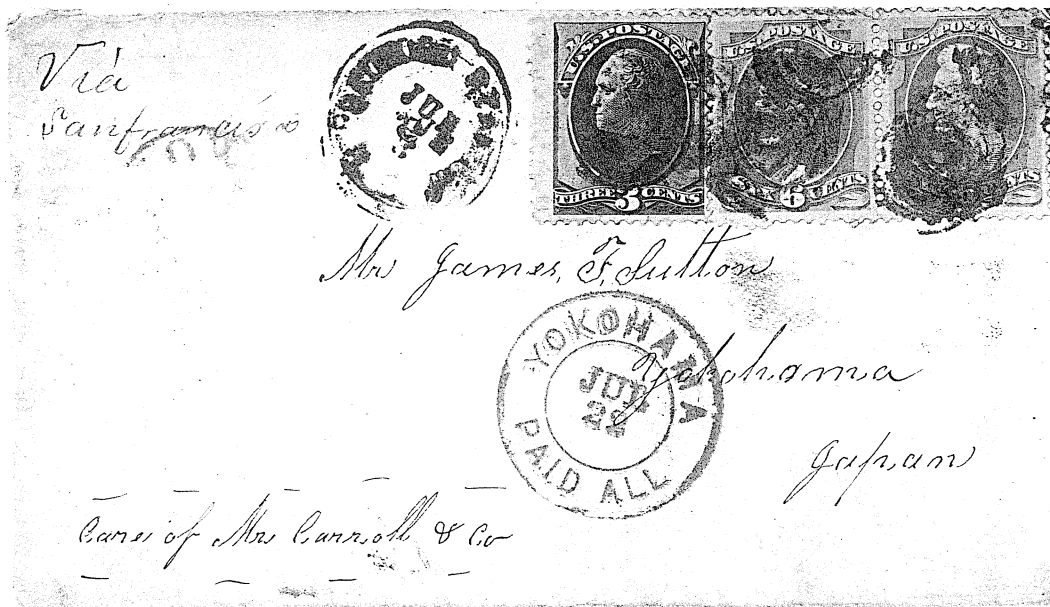 Via
Sanfrancisco
JUN
U.S. POSTAGE
THREE 3 CENTS
U.S. POSTAGE
SIX 6 CENTS
U.S. POSTAGE
CENTS
Mr James, F, Sutton
Yokohama
Japan
YOKOHAMA
JUL
22
PAID ALL
Care of Mrs Carroll & Co